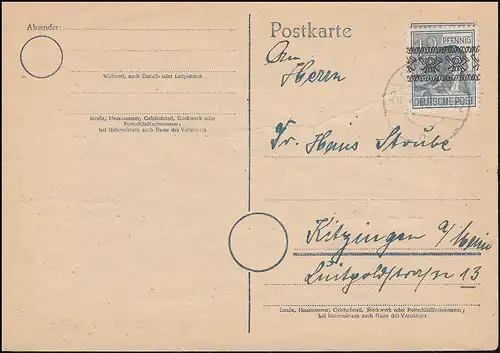 Absender:
Wohnort, auch Zustell- oder Leitpostamt
Straße, Hausnummer, Gebäudeteil, Stockwerk oder
Postschließfachnummer;
bei Untermietern auch Name des Vermieters
Postkarte
12 PFENNIG
DEUTSCHE POST
An
Herrn
Dr. Hans Strube
Kitzingen a/Main
Luitpoldstraße 13
Straße, Hausnummer, Gebäudeteil, Stockwerk oder Postschließfachnummer;
bei Untermietern auch Name des Vermieters